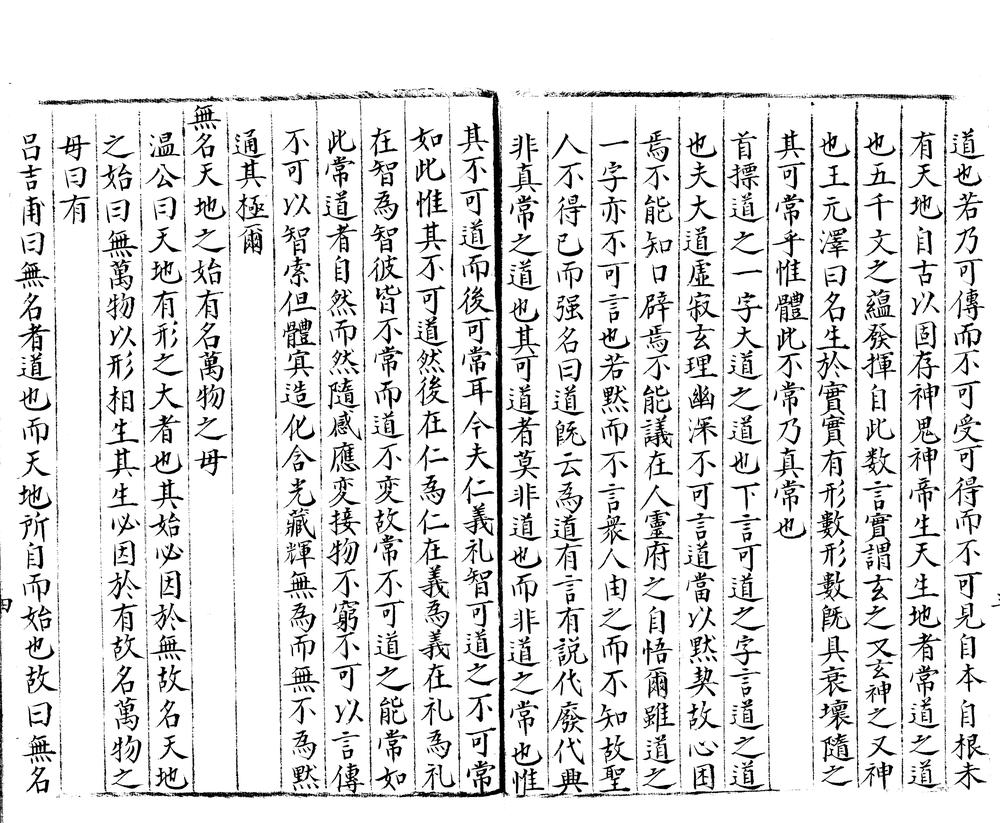 道也若乃可傳而不可受可得而不可見自本自根未
有天地自古以固存神鬼神帝生天生地者常道之道
也五千文之蘊發揮自此数言實謂玄之又玄神之又神
也王元澤曰名生於實實有形數形數既具衰壞隨之
其可常乎惟體此不常乃真常也
首摽道之一字大道之道也下言可道之字言道之道
也夫大道虛寂玄理幽深不可言道當以默契故心困
焉不能知口辟焉不能議在人靈府之自悟爾雖道之
一字亦不可言也若默而不言衆人由之而不知故聖
人不得已而强名曰道既云為道有言有説代廢代典
非真常之道也其可道者莫非道也而非道之常也惟
其不可道而後可常耳今夫仁義礼智可道之不可常
如此惟其不可道然後在仁為仁在義為義在礼為礼
在智為智彼皆不常而道不変故常不可道之能常如
此常道者自然而然隨感應変接物不窮不可以言傳
不可以智索但體寘造化含光藏輝無為而無不為默
通其極爾
無名天地之始有名萬物之母
温公曰天地有形之大者也其始必因於無故名天地
之始曰無萬物以形相生其生必因於有故名萬物之
母曰有
吕吉甫曰無名者道也而天地所自而始也故曰無名